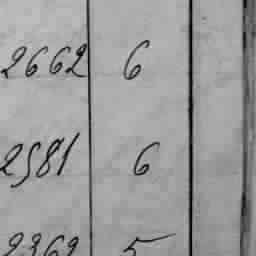 2662 6
2581 6
2369 5